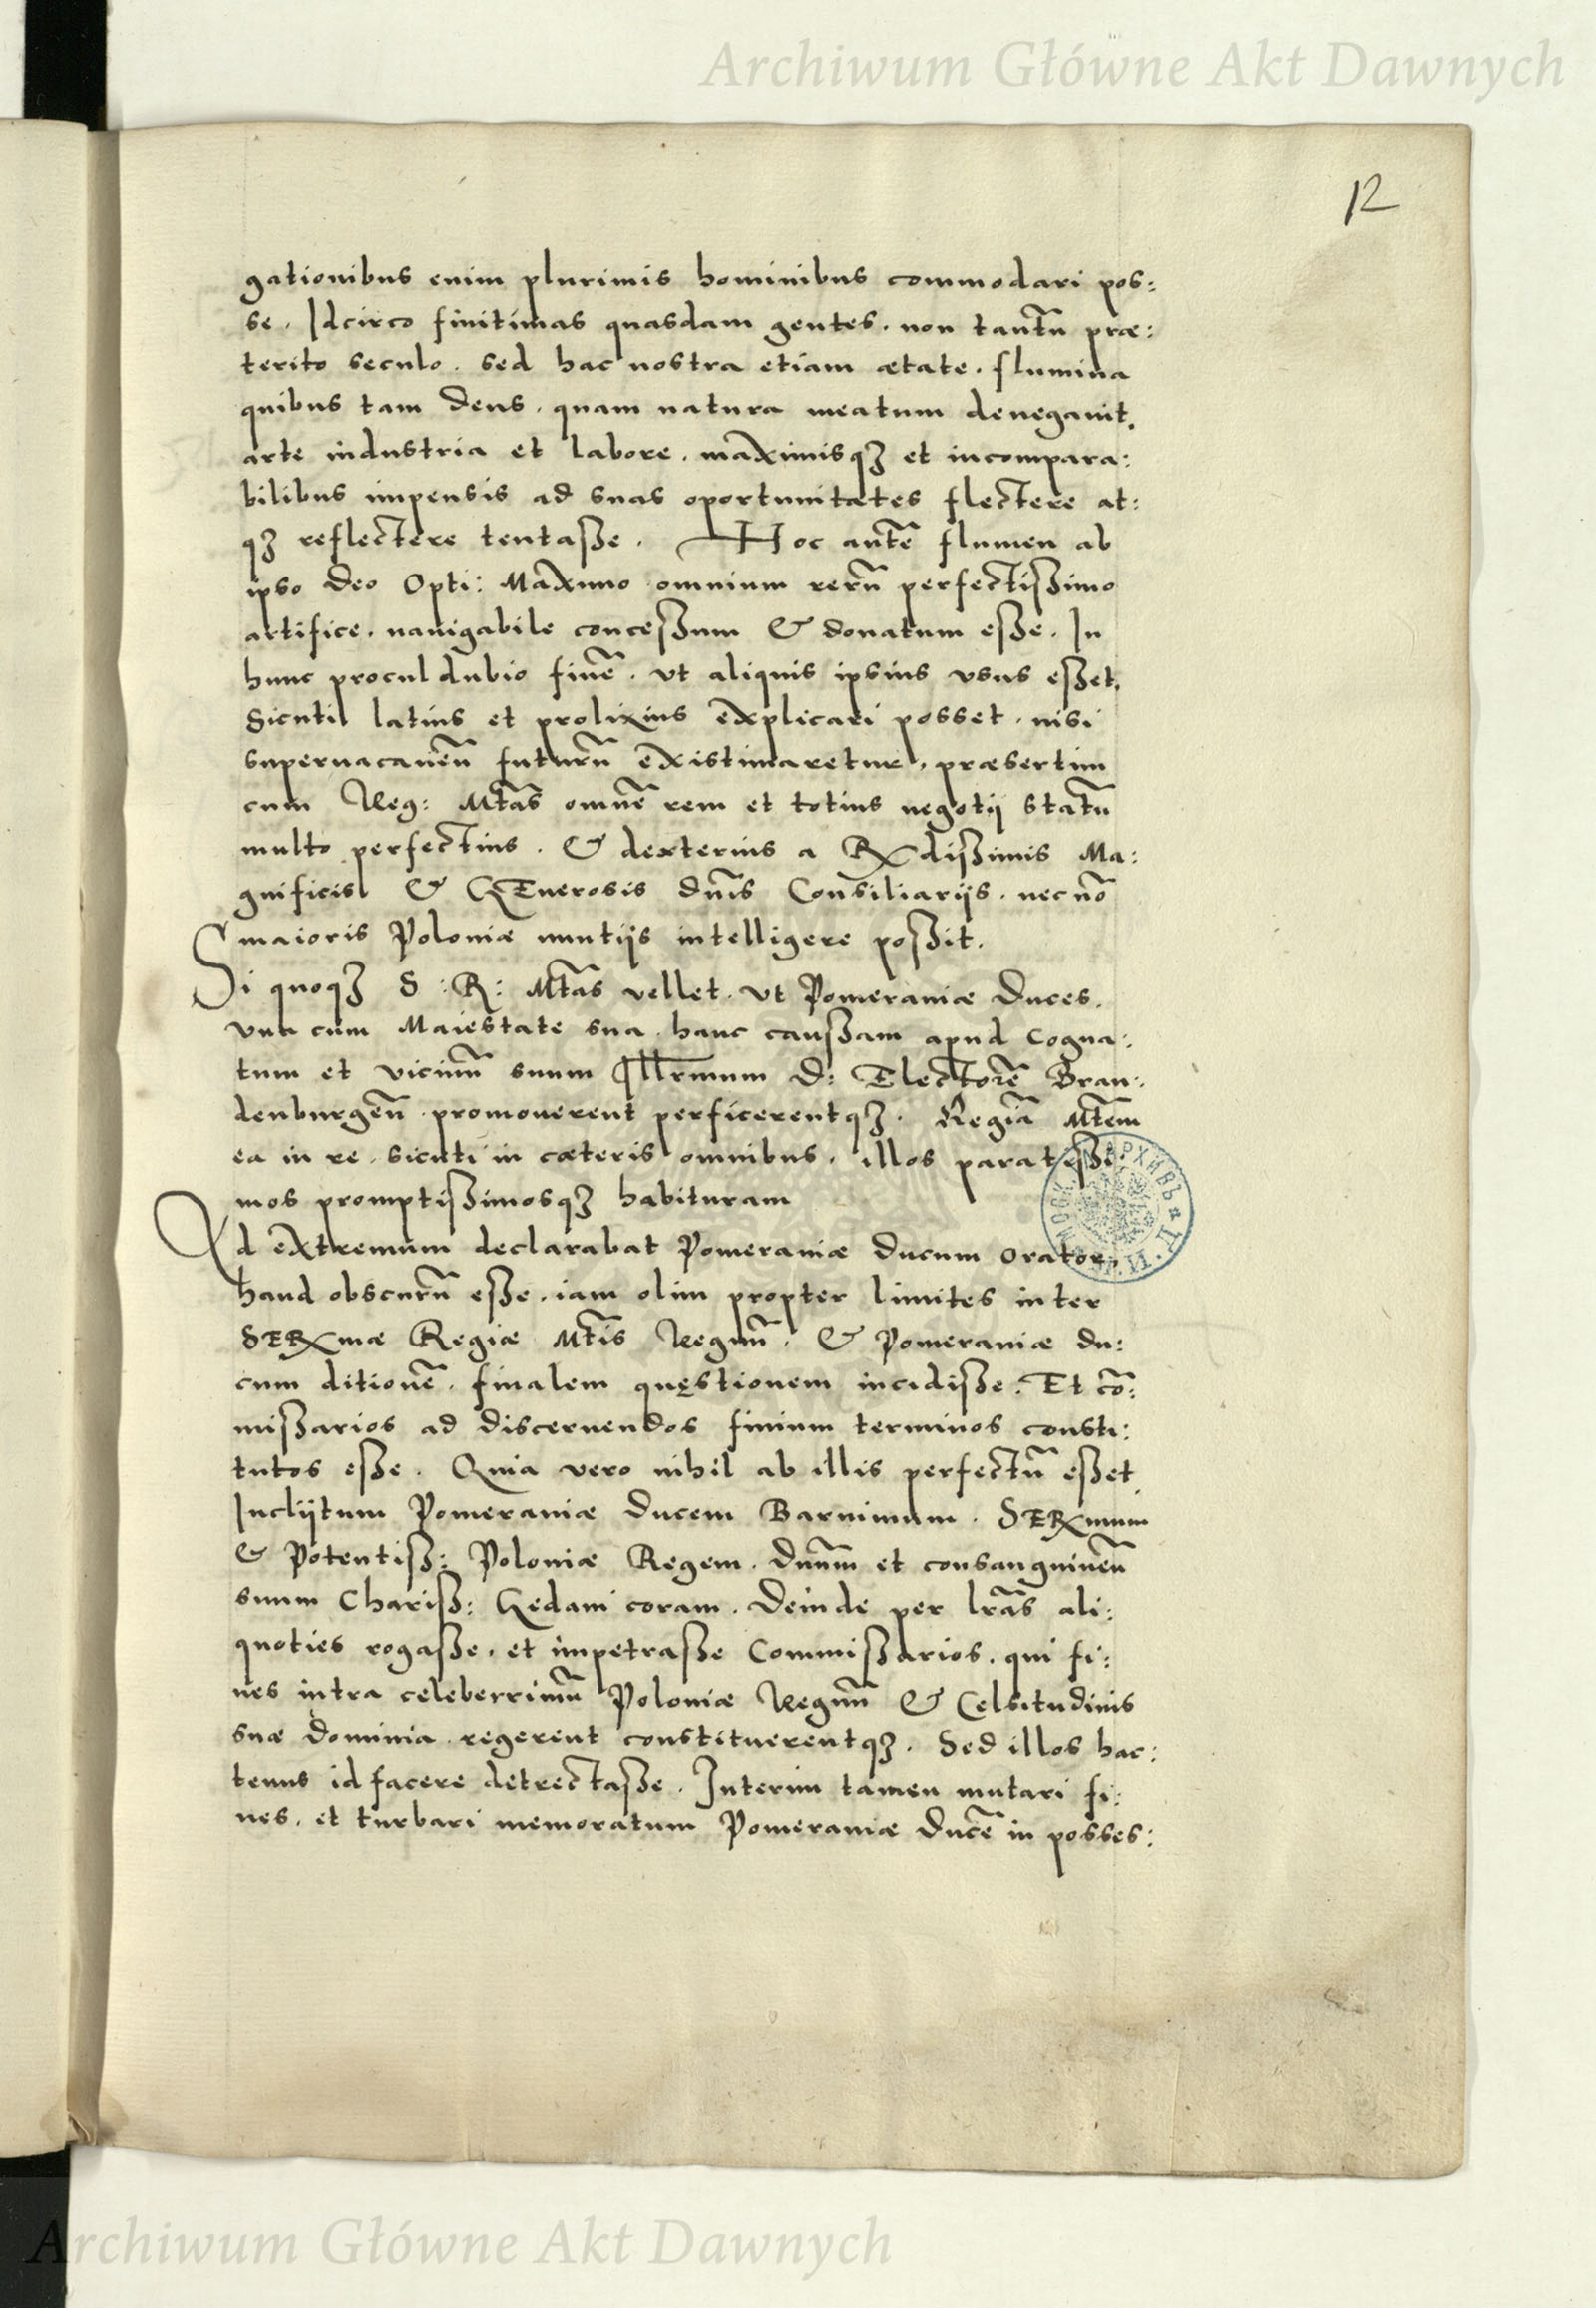 Archiwum Główne Akt Dawnych
12
gationibus enim plurimis hominibus commodari pos:
se. Idcirco finitimas quasdam gentes. non tantũ præ:
terito seculo. sed hac nostra etiam ætate. flumina
quibus tam Deus. quam natura meatum denegauit.
arte industria et labore. maximisqꝫ et incompara:
bilibus impensis ad suas oportunitates flectere at:
qꝫ reflectere tentaße. Hoc autẽ flumen ab
ipso Deo Opti: Maximo omnium rerũ perfectißimo
artifice. nauigabile conceßum & donatum eße. In
hunc procul dubio finẽ. vt aliquis ipsius vsus eßet.
Sicuti latius et prolixius explicari posset. nisi
superuacaneũ futurũ existimaretur, præsertim
cum Reg: Mtãs omnẽ rem et totius negotij statũ
multo perfectius. & dexterius a Rdißimis Ma:
gnificis & GEnerosis dnĩs Consiliarijs. nec nõ
maioris Poloniæ nuntijs intelligere poßit.
Si quoqꝫ S: R: Mtãs vellet. vt Pomeraniæ Duces.
vna cum Maiestate sua. hanc caußam apud Cogna:
tum et vicinũ suum Illr̃mum D: Electorẽ Bran:
denburgeñ. promouerent perficerentqꝫ. Regiã Mtẽm
ea in re. sicuti in cæteris omnibus. illos paratißi:
mos promptißimosqꝫ habituram
Ad extremum declarabat Pomeraniæ Ducum orator,
haud obscurũ eße. iam olim propter limites inter
SERmæ Regiæ Mtĩs Regnũ. & Pomeraniæ du:
cum ditionẽ. finalem quęstionem incidiße. Et cõ:
mißarios ad discernendos finium terminos consti:
tutos eße. Quia vero nihil ab illis perfectũ eßet.
Inclijtum Pomeraniæ Ducem Barnimum. SERmum
& Potentiß: Poloniæ Regem. Dnũm et consanguineũ
suum Chariß: Gedani coram. Deinde per lrãs ali:
quoties rogaße. et impetraße Commißarios. qui fi:
nes intra celeberrimũ Poloniæ Regnũ & Celsitudinis
suæ Dominia. regerent constituerentqꝫ. Sed illos hac:
tenus id facere detrectaße. Interim tamen mutari fi:
nes. et turbari memoratum Pomeraniæ Ducẽ in posses:
Archiwum Główne Akt Dawnych